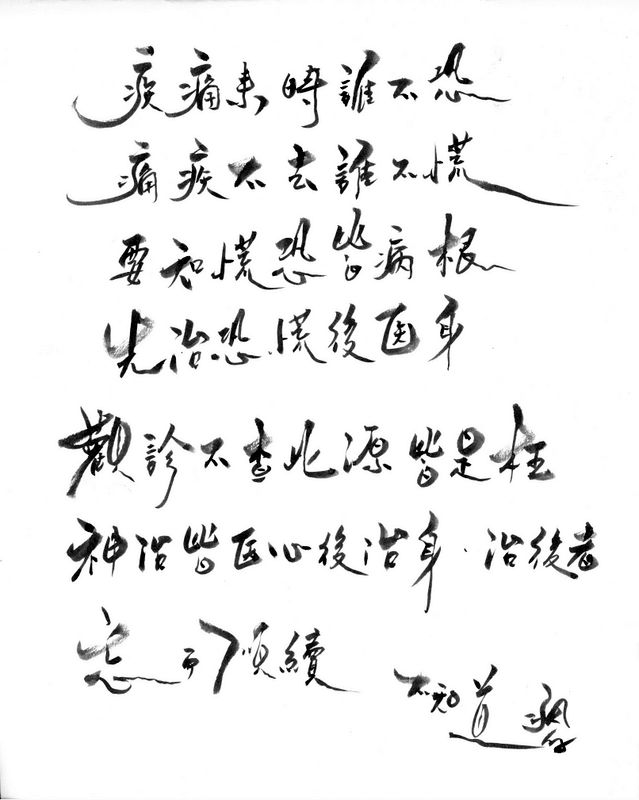 疾痛來時誰不恐
痛疾不去誰不慌
要知慌恐皆病根
先治恐慌後医身
觀診不查此源皆是枉
神治皆医心後治身．治後者
忘
順續
不知道